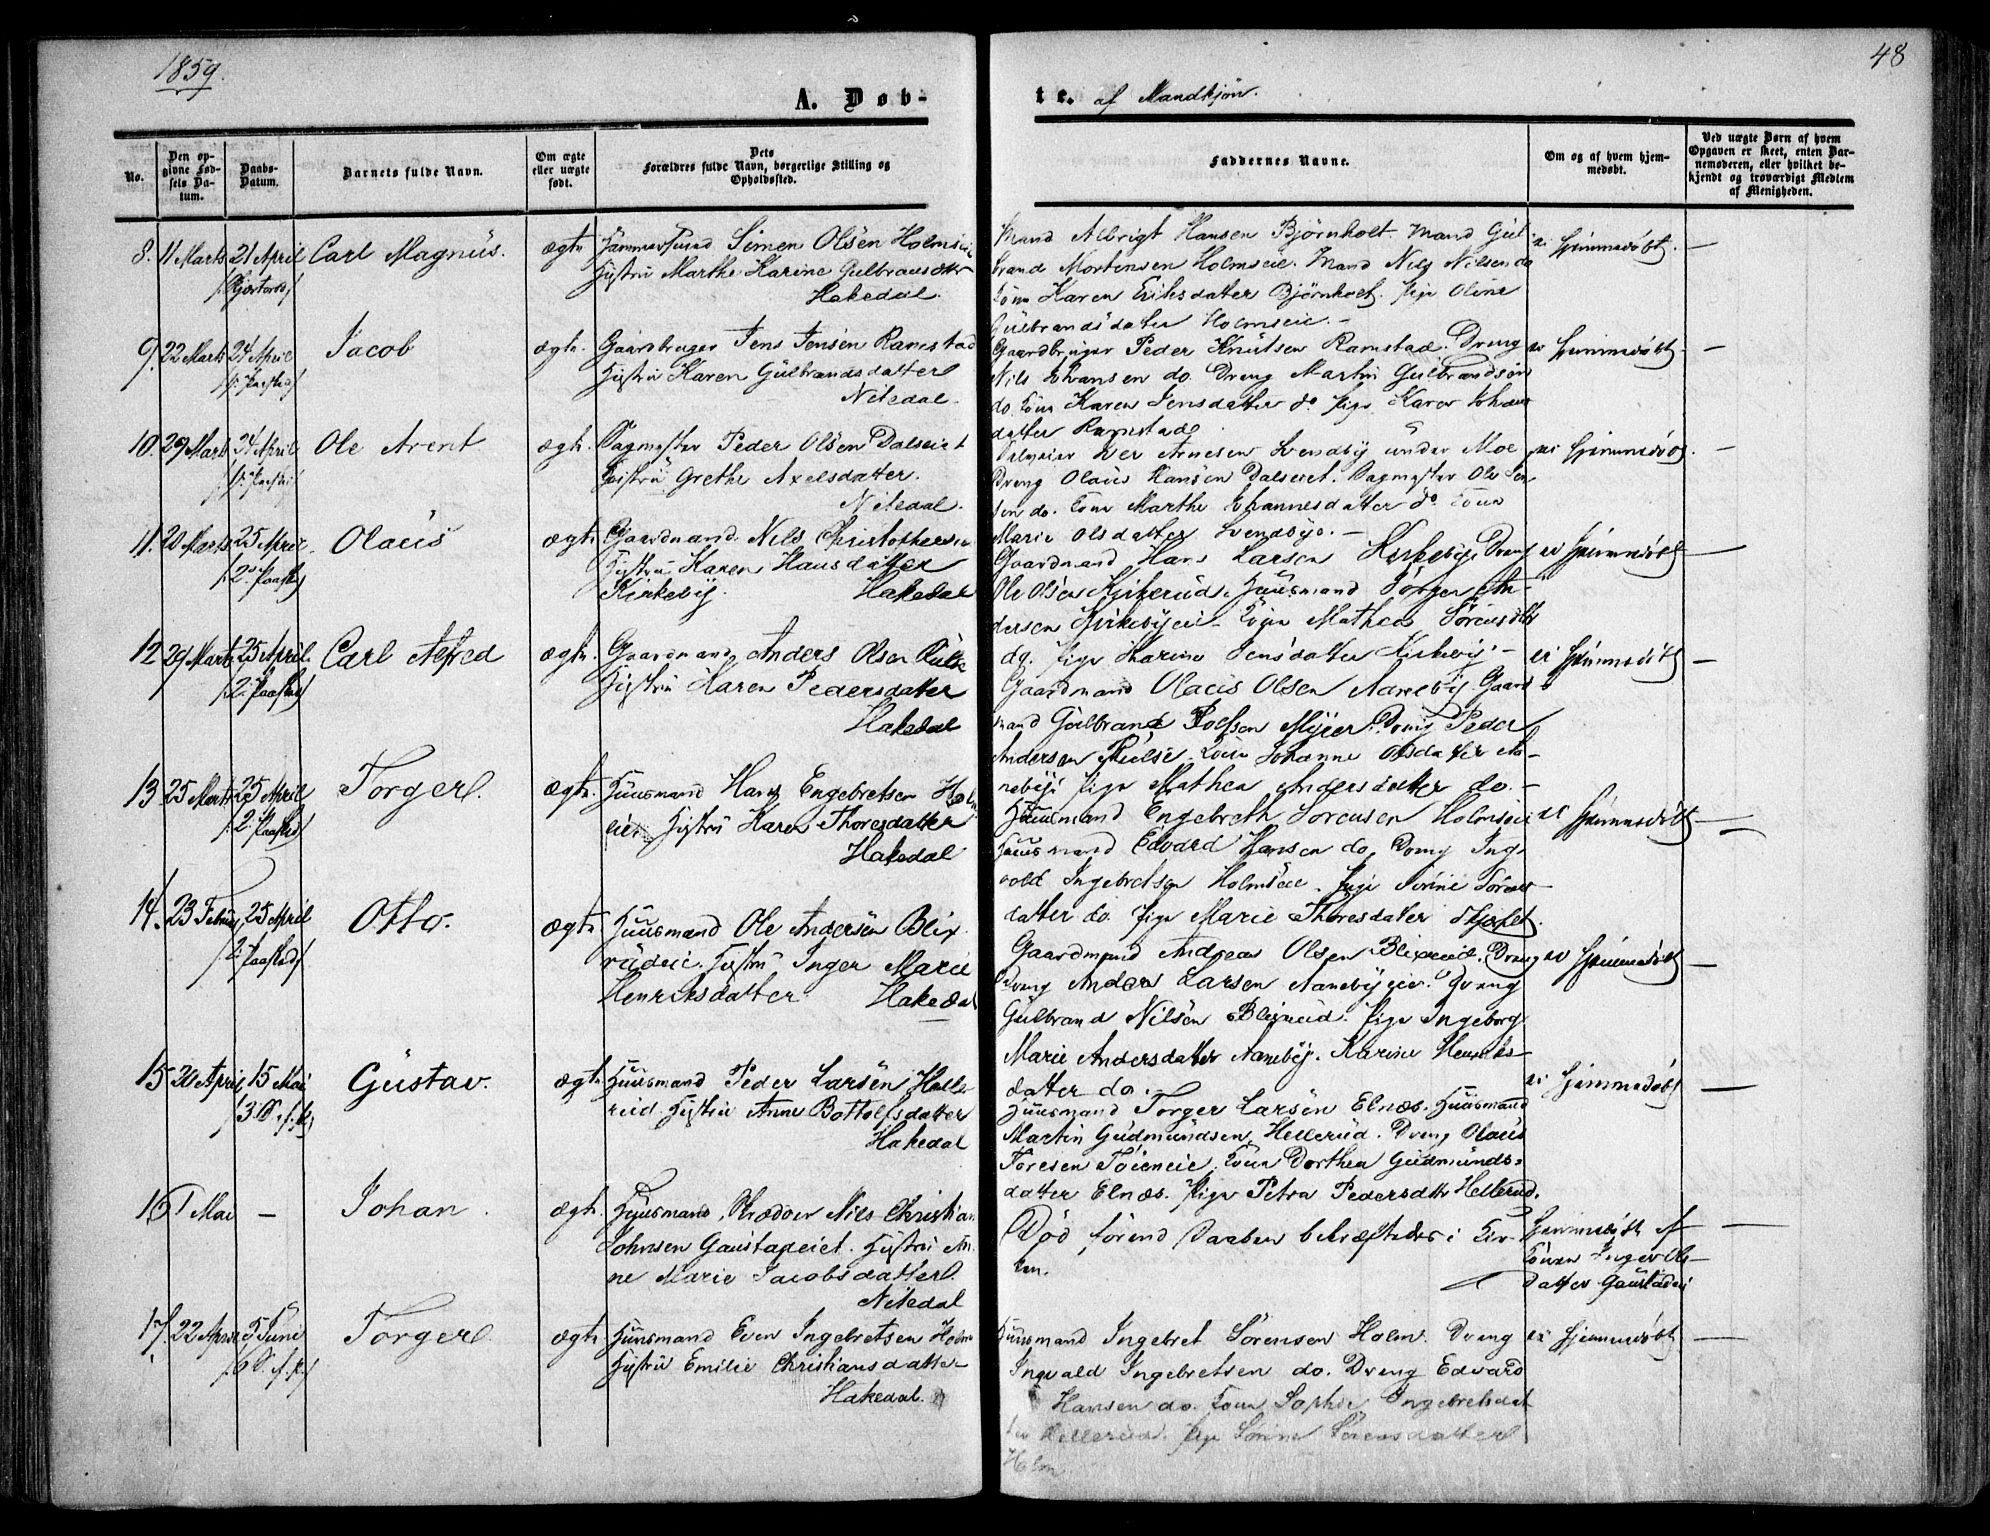 1859.
48
A. Døb-
te. af Mandkjøn.
No.
Den op-
givne Fød-
sels Da-
tum.
Daabs-
Datum.
Barnets fulde Navn.
Om ægte
eller uægte
født.
Dets
Forældres fulde Navn, borgerlige Stilling og
Opholdssted.
Faddernes Navne.
Om og af hvem hjem-
medøbt.
Ved uægte Børn af hvem
Opgaven er skeet, enten Bar-
nemoderen, eller hvilket be-
kjendt og troværdigt Medlem
af Menigheden.
8. 11 Marts 21 April Carl Magnus. ægte Simen Olsen
Hustru Marthe Karine Gulbrandsdatter
Hakedal.
Mand Albrigt Hansen Bjørnholt. Mand Gul
brand Mortensen Holmseie. Mand Nils Nilsen do
Kone Karen Eriksdatter Bjørnholt. Pige Oline
Gulbrandsdatter Holmseie.
ei Hjemmedøbt. —
9. 22 Marts 24 April Jacob ægte. Gaardbruger Jens Jensen Ramstad
Hustru Karen Gulbrandsdatter
Nitedal.
Gaardbruger Peder Knutsen Ramstad. Dreng
Nils Johansen do. Dreng Martin Gulbrandsen
do. Kone Karen Jensdatter do. Pige Karen Johans
datter Ramstad
ei Hjemmedøbt. —
10. 29 Marts 24 April Ole Arent ægte. Sagmester Peder Olsen Dalseiet
Hustru Grethe Axelsdatter.
Nitedal.
Arnesen under Moe
Dreng Olaus Hansen Dalseiet. Sagmester Ole
do. Kone Marthe Johannesdatter do. Kone
Marie Olsdatter
ei Hjemmedøbt. —
11. 20 Marts 25 April Olaus ægte Gaardmand Nils Christophersen
Hustru Karen Hansdatter
Kirkeby. Hakedal
Gaardmand Hans Larsen Kirkeby. Dreng
Ole Olsen Kirkerud. Huusmand Torger An-
dersen Kirkebyeie. Kone Mathea Sørensdtr
do. Pige Karine Jensdatter Kirkeby. —
ei Hjemmedøbt —
12 29 Marts 25 April Carl Alfred ægte. Gaardmand Anders Olsen
Hustru Karen Pedersdatter
Hakedal
Gaardmand Olaus Olsen Aaneby. Gaard
mand Gulbrand Dreng Peder
Andersen Kone Johanne Olsdatter Aa-
neby. Pige Mathea Andersdatter do. —
ei Hjemmedøbt —
13 25 Marts 25 April Torger. ægte. Huusmand Hans Engebretsen
Hustru Karen Thoresdatter
Hakedal
Huusmand Engebreth Sørensen Holmseie
Huusmand Edvard Hansen do. Dreng Ing-
vold Ingebretsen Holmseie. Pige
datter do. Pige Marie Thoresdatter
ei Hjemmedøbt —
14. 23 Februar 25 April Otto. ægte Huusmand Ole Andersen Blix-
rudeie. Hustru Inger Marie
Henriksdatter Hakedal
Gaardmand Andreas Olsen Blixrud. Dreng
Dreng Anders Larsen Aanebyeie. Dreng
Gulbrand Nilsen Blixrud. Pige Ingeborg
Marie Andersdatter Aaneby. Karine Henriks-
datter do.
ei Hjemmedøbt —
15 April 15 Mai Gustav. ægte Huusmand Peder Larsen Helle-
rud. Hustru Anne Bottolfsdatter
Hakedal
Huusmand Torger Larsen Elnæs. Huusmand
Martin Gudmundsen Hellerud. Dreng Olaus
Toresen Kone Dorthea Gudmunds-
datter Elnæs. Pige Petra Pedersdtr Hellerud.
ei Hjemmedøbt —
16 1 Mai — Johan. ægte. Huusmand, Skræder Nils Christian
Johnsen Gaustadeiet. Hustru An-
ne Marie Jacobsdatter.
Nitedal
Død førend Daaben bekræftedes i Kir-
ken.
Hjemmedøbt af
Konen
datter Gaustadeie
17. 22 April 5 Juni Torger. ægte Huusmand Even Ingebretsen Holm
Hustru Emilie Christiansdatter
Hakedal.
Huusmand Ingebret Sørensen Holm. Dreng
Ingvald Ingebretsen do. Dreng Edvard
Hansen do. Kone Sophie Ingebretsdat
ter Hellerud. Pige Sørine Sørensdatter
Holm
ei Hjemmedøbt —